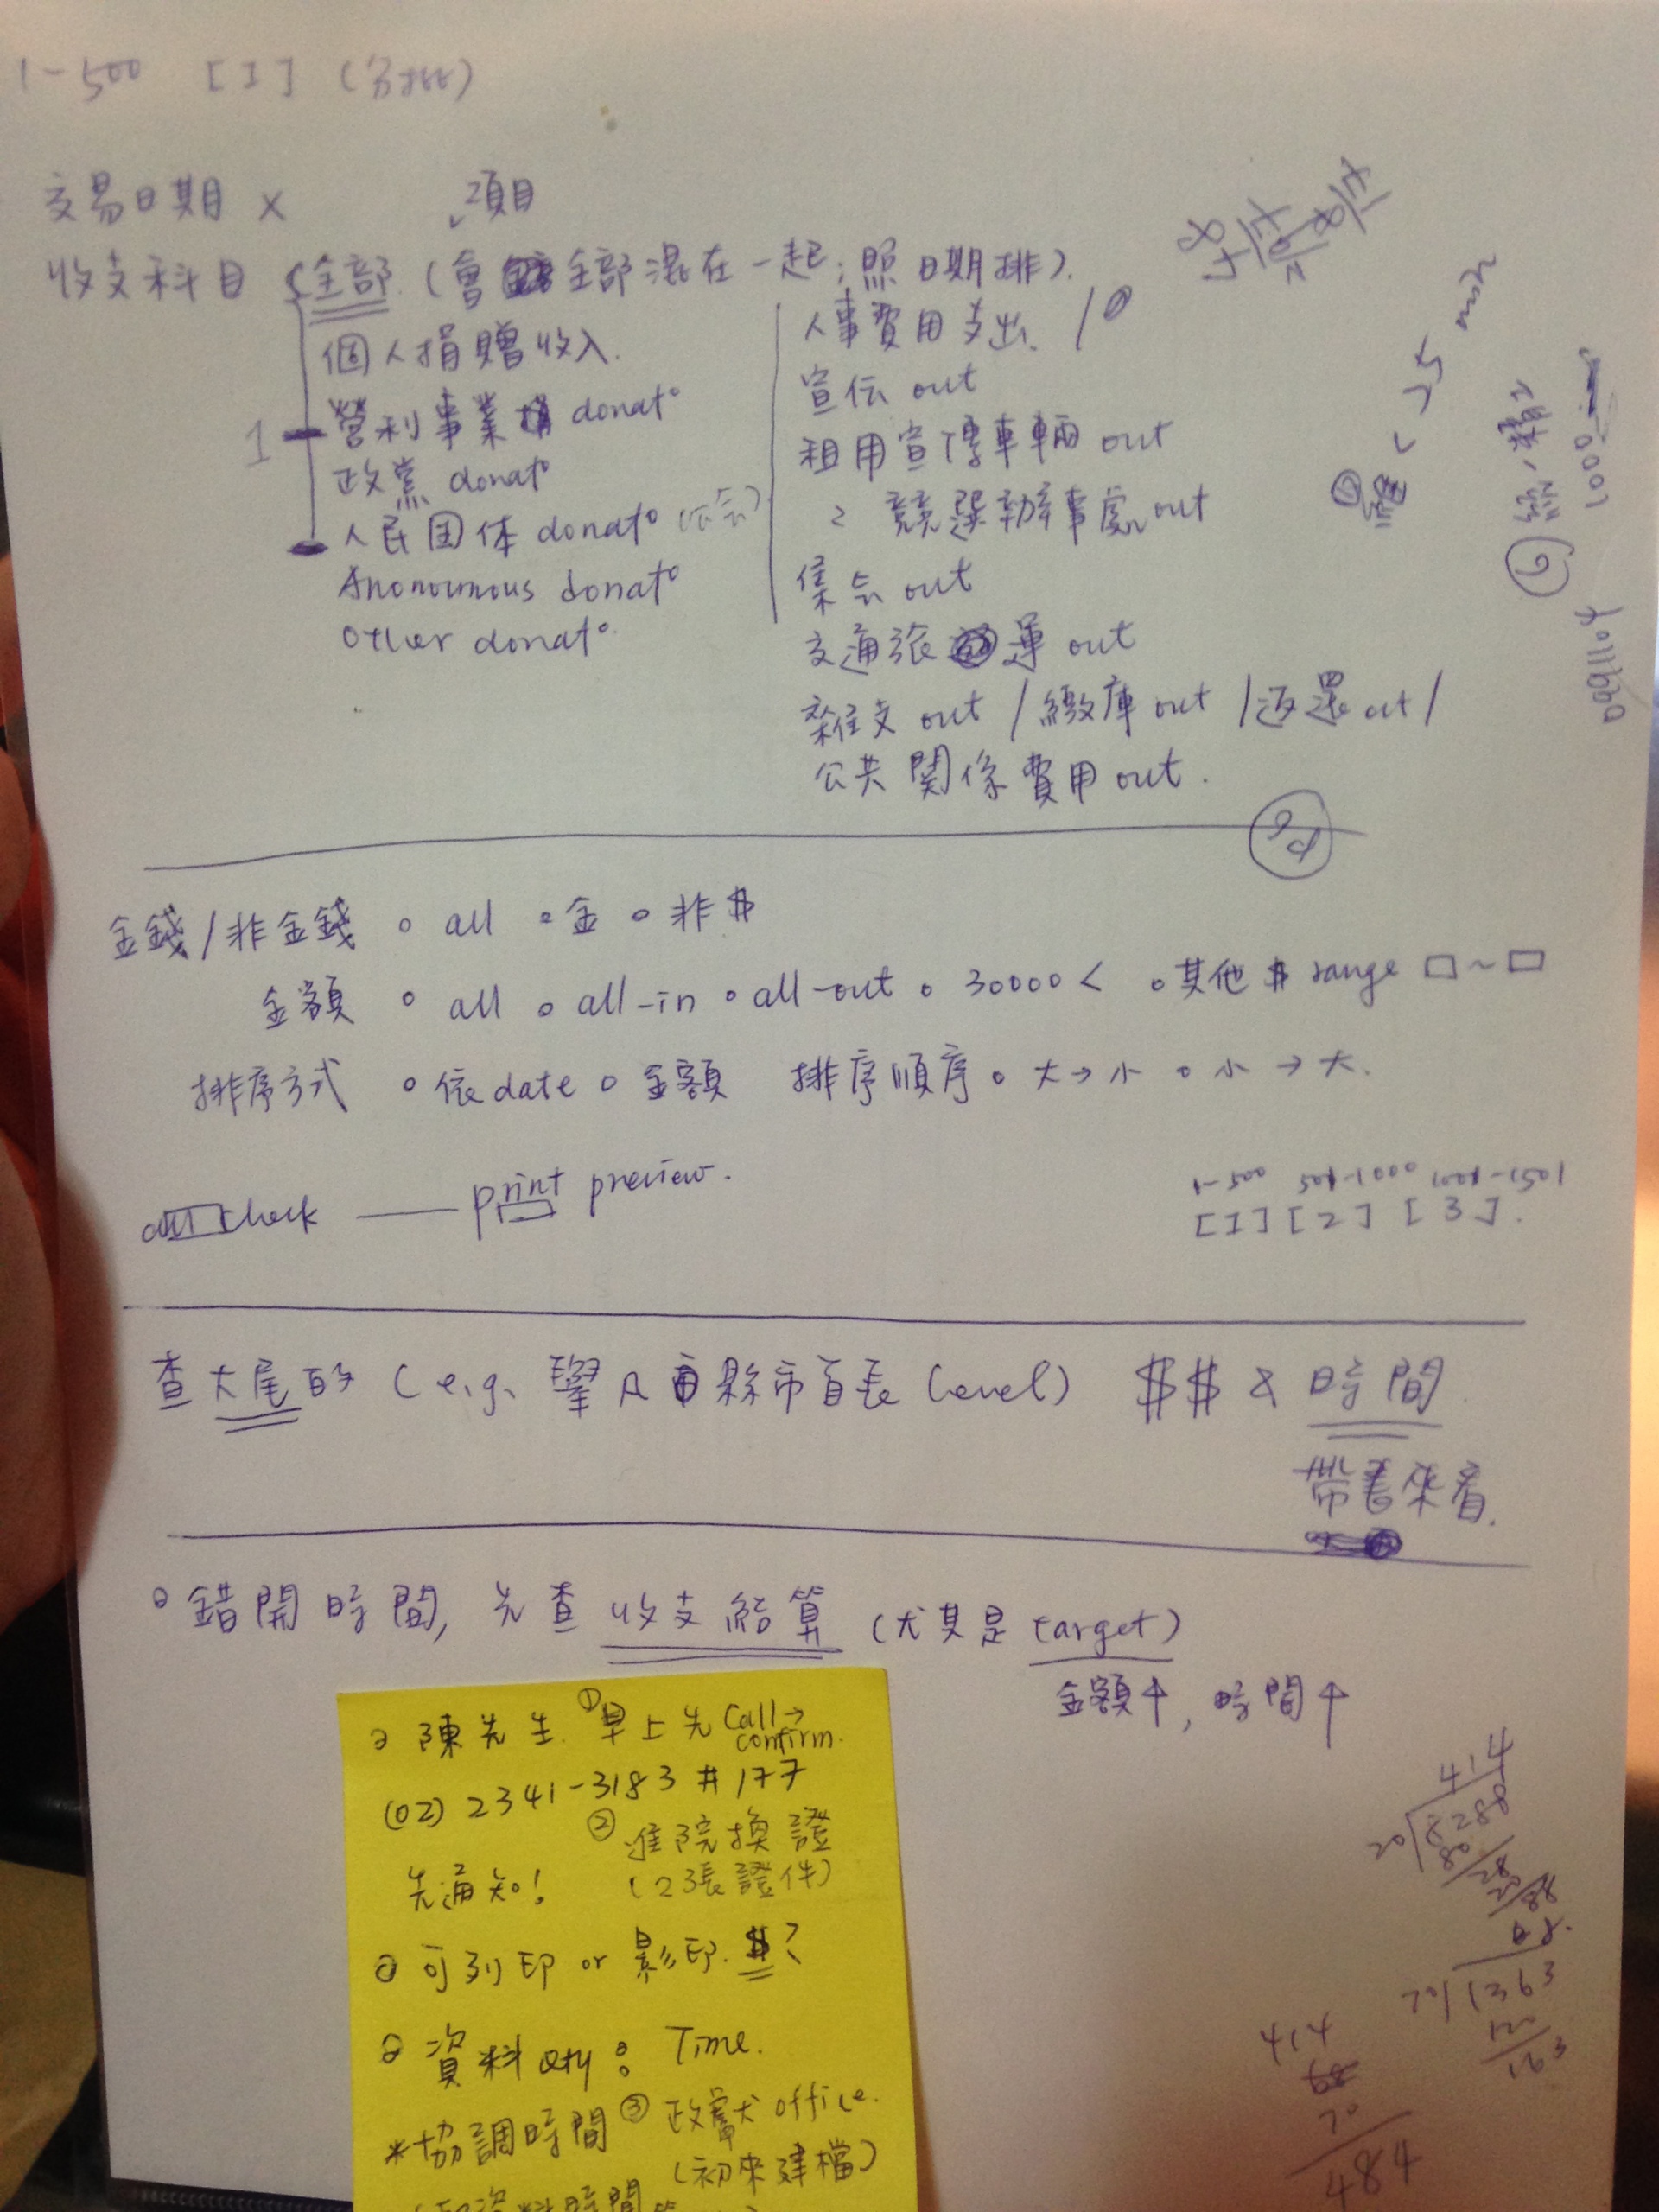 1-500 [I] (分批)
交易日期 x
項目
收支科目 全部 (會全部混在一起;照日期排).
個人捐贈收入.
1 營利事業 donat°
政黨 donat°
人民团体 donat°
Anonoumous donat°
Other donat°.
人事費用支出. /
宣伝 out
租用宣傳車輛 out
2 競選辦事處 out
集会 out
交通旅運 out
雜支 out / 繳庫 out / 返還 out /
公共関係費用 out.
1000
金錢/非金錢 ○ all ○ 金 ○ 非$
金額 ○ all ○ all-in ○ all-out ○ 30000 < ○ 其他 $ range □~□
排序方式 ○ 依date ○ 金額 排序順序 ○ 大→小 ○ 小→大.
all check —— print preview.
1-500 501-1000 1001-1501
[I] [2] [3].
查大尾的 (e.g. 縣市首長 level) $$ & 時間
帶著來看.
錯開時間, 先查 收支結算 (尤其是 target)
金額↑, 時間↑
陳先生. ①早上先 Call→
confirm.
(02) 2341-3183 # 177
先通知!
② 進院換證
(2張證件)
可列印 or 影印. $?
資料 Qty: Time.
*協調時間 ③ 政獻 office.
(初來建檔)
414
20 8288
80
28
88
70 1363
163
414
70
484